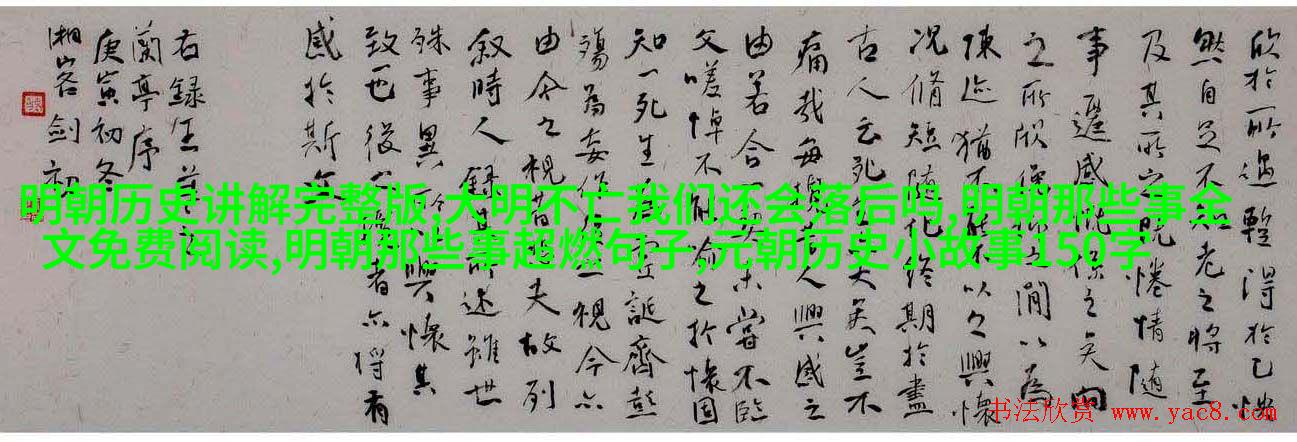 欣於所遇暫得於己快
然自足不知老之將至
及其所之既倦情隨
事遷感慨係之矣向
之所欣俛仰之間以為
陳迹猶不能不以之興懷
況脩短隨化終期於盡
古人云死生亦大矣豈不
痛哉每攬昔人興感之
由若合一契未嘗不臨
文嗟悼不能喻之於懷固
知一死生為虛誕齊彭
殤為妄作後之視今亦
由今之視昔悲夫故列
敘時人錄其所述雖世
殊事異所以興懷其
致一也後之攬者亦將有
感於斯文
右錄王羲之
蘭亭序
庚寅初冬
湘客劍初
明朝历史讲解完整版,大明不亡我们还会落后吗,明朝那些事全
文免费阅读,明朝那些事超燃句子,元朝历史小故事150字
书法欣赏 www.yac8.com